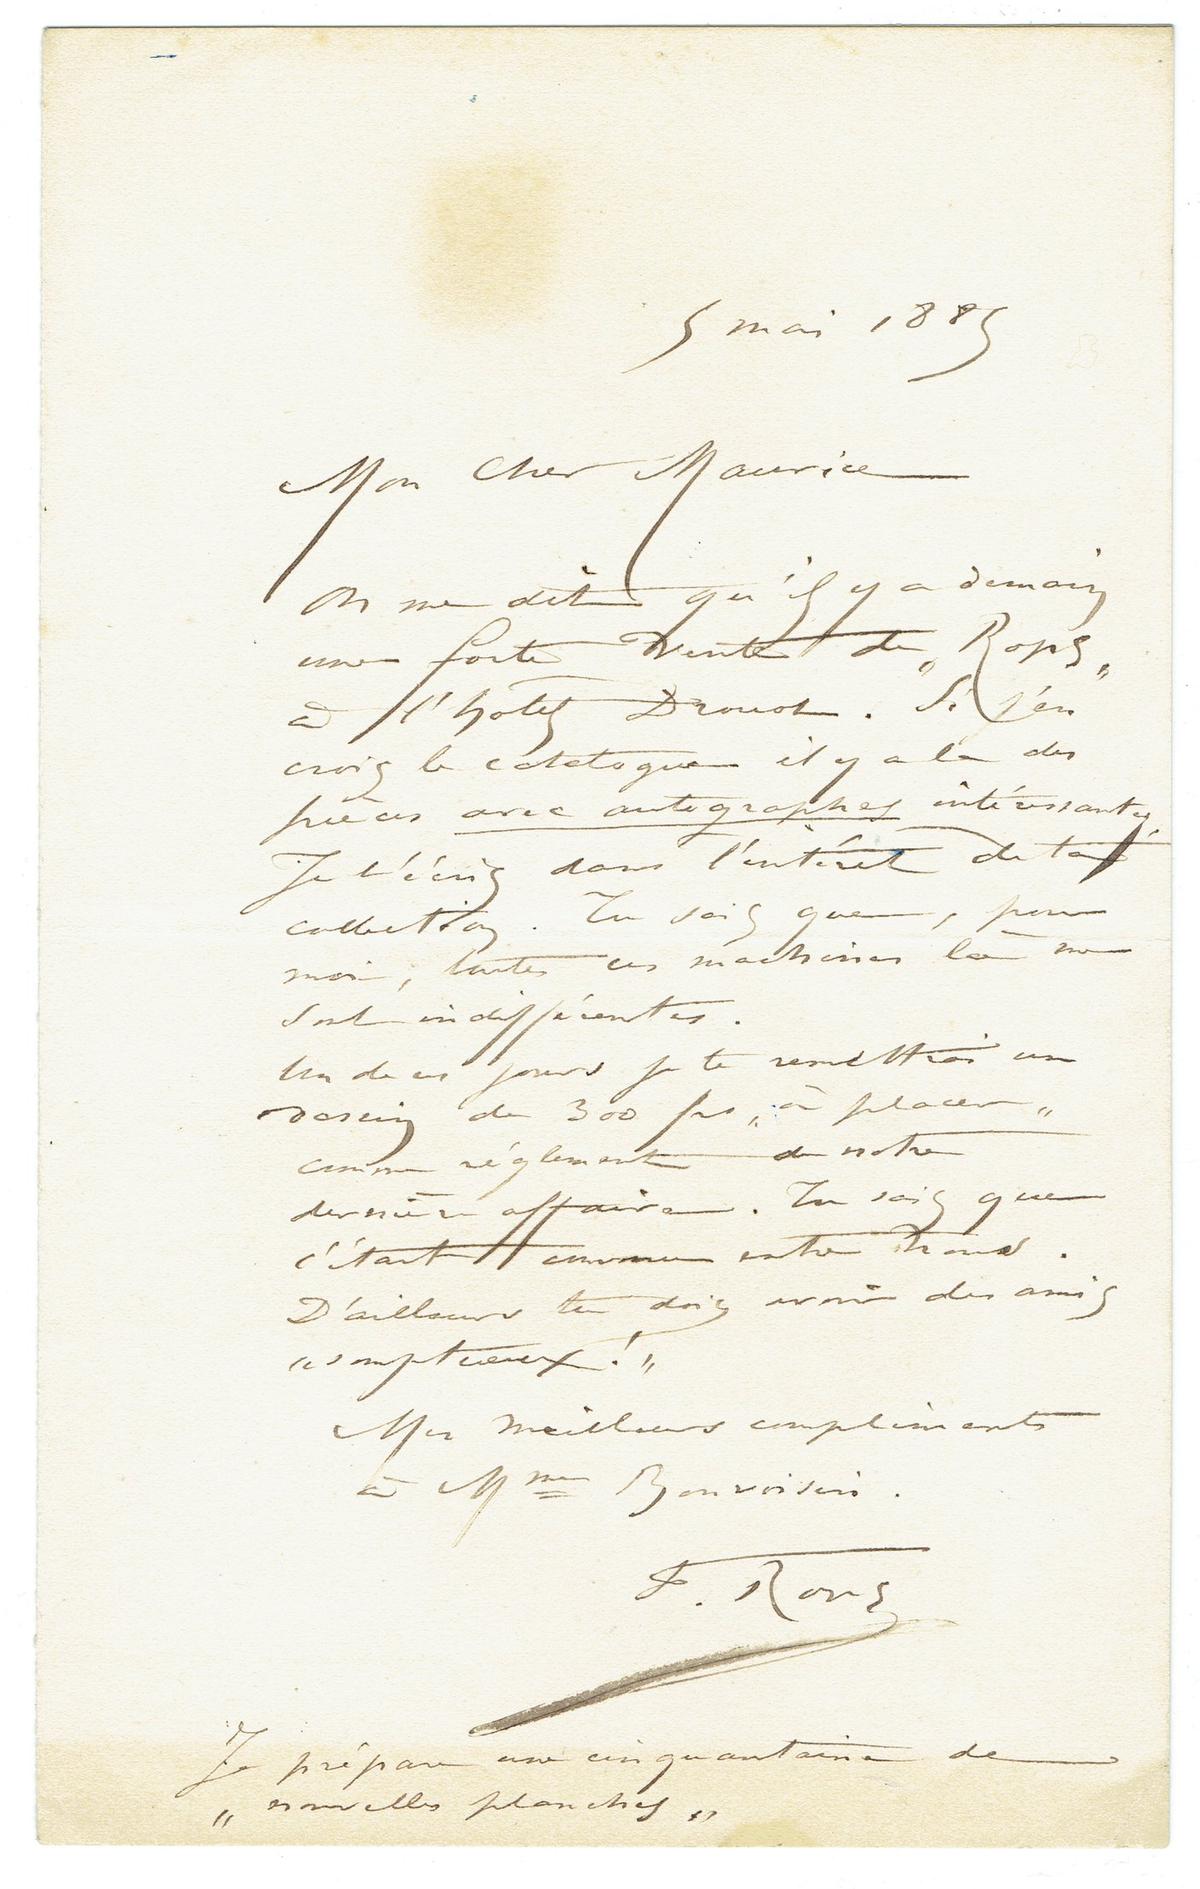 5 mai 1885
Mon Cher Maurice
On me dit qu'il y a demain
une forte vente de „Rops„
à l'hotel Drouot. Si j'en
crois le catalogue il y a la des
pièces avec autographes intéressants.
Je t'écris dans l'intérêt de ta
collection. Tu sais que, pour
moi, toutes ces machines là me
sont indifférentes.
Un de ces jours je te remettrai un
dessin de 300 frs „à placer„
comme réglement de notre
dernière affaire. Tu sais que
c'était convenu entre nous.
D'ailleurs tu dois avoir des amis
„somptueux!„
Mes meilleurs compliments
à Mme Bonvoisin.
F. Rops
Je prépare une cinquantaine de
„nouvelles planches„